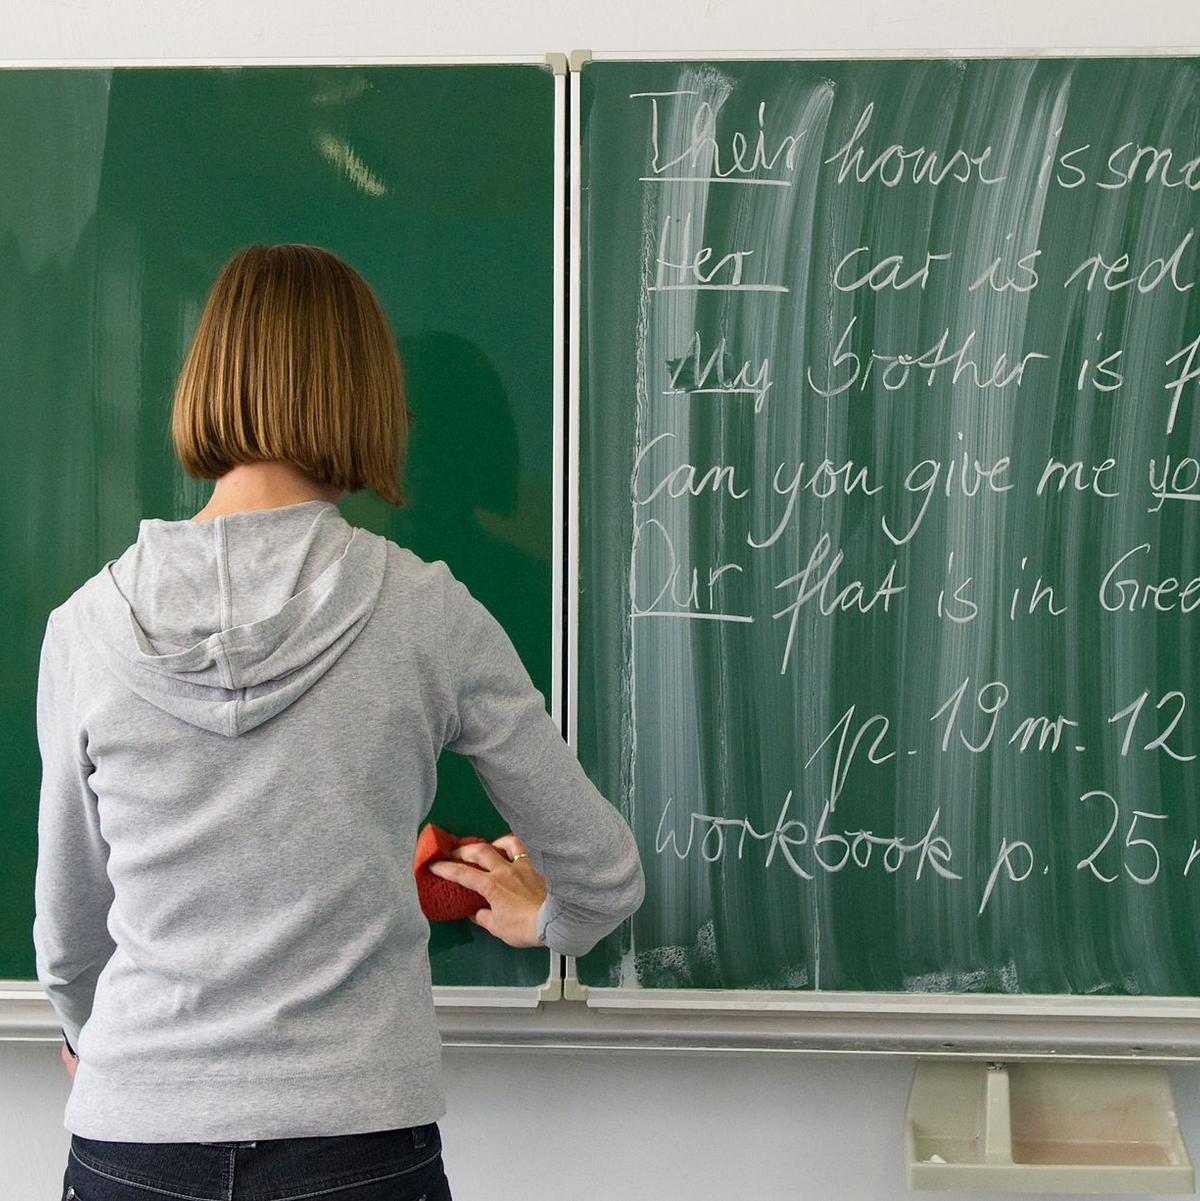 Their house is sma
Her car is red
My brother is f
Can you give me yo
Our flat is in Gree
p. 19 nr. 12
workbook p. 25 n